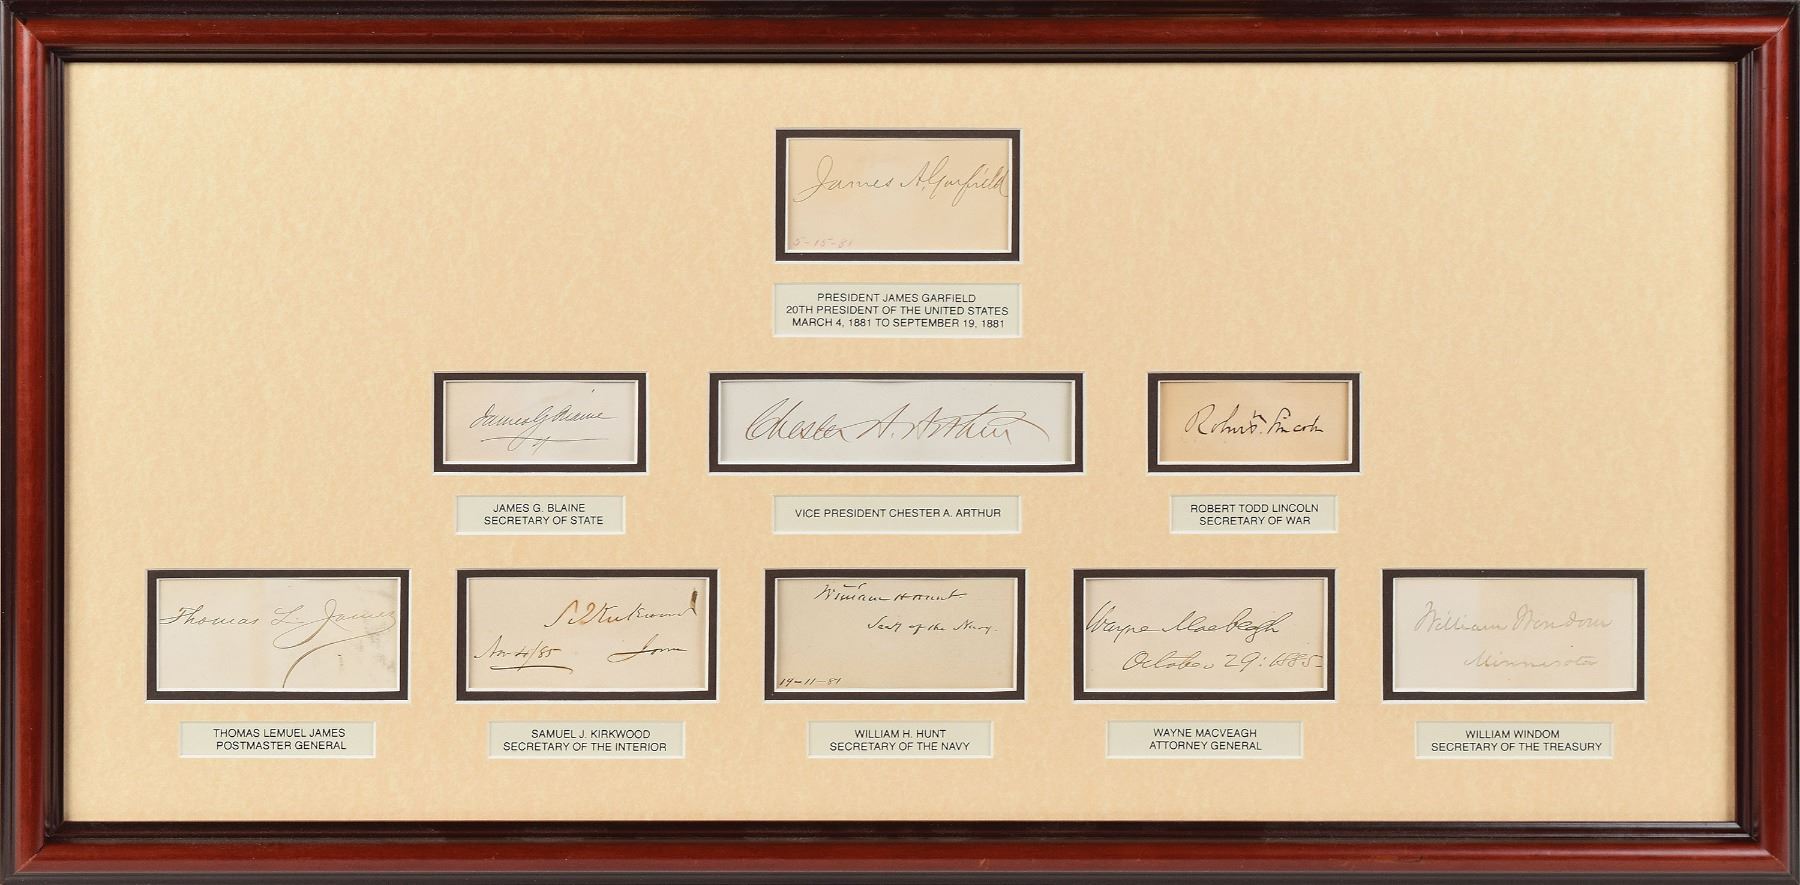 James A. Garfield
5-15-81
PRESIDENT JAMES GARFIELD
20TH PRESIDENT OF THE UNITED STATES
MARCH 4, 1881 TO SEPTEMBER 19, 1881
James G Blaine
JAMES G. BLAINE
SECRETARY OF STATE
Chester A. Arthur
VICE PRESIDENT CHESTER A. ARTHUR
Robt. T. Lincoln
ROBERT TODD LINCOLN
SECRETARY OF WAR
Thomas L. James
THOMAS LEMUEL JAMES
POSTMASTER GENERAL
S J Kirkwood
Nov 4/85 Iowa
SAMUEL J. KIRKWOOD
SECRETARY OF THE INTERIOR
William H Hunt
Secy of the Navy.
19-11-81
WILLIAM H. HUNT
SECRETARY OF THE NAVY
Wayne MacVeagh
October 29: 1885
WAYNE MACVEAGH
ATTORNEY GENERAL
William Windom
Minnesota
WILLIAM WINDOM
SECRETARY OF THE TREASURY